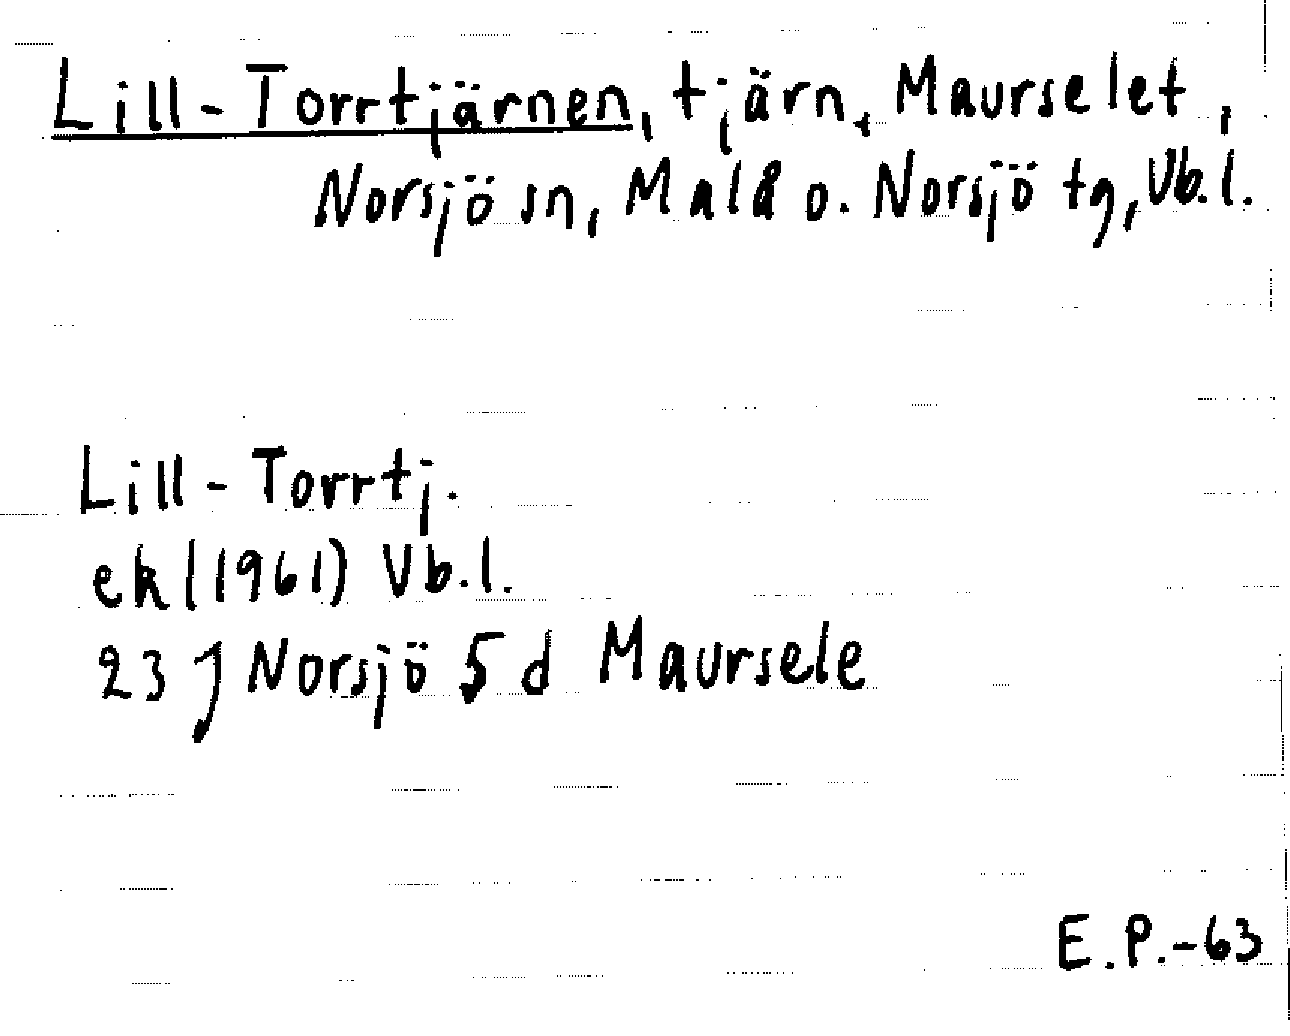 Lill-Torrtjärnen, tjärn, Maurselet,
Norsjö sn, Malå o. Norsjö tg, Vb.l.
Lill-Torrtj.
ek (1961) Vb.l.
23 J Norsjö 5 d Maursele
E.P.-63